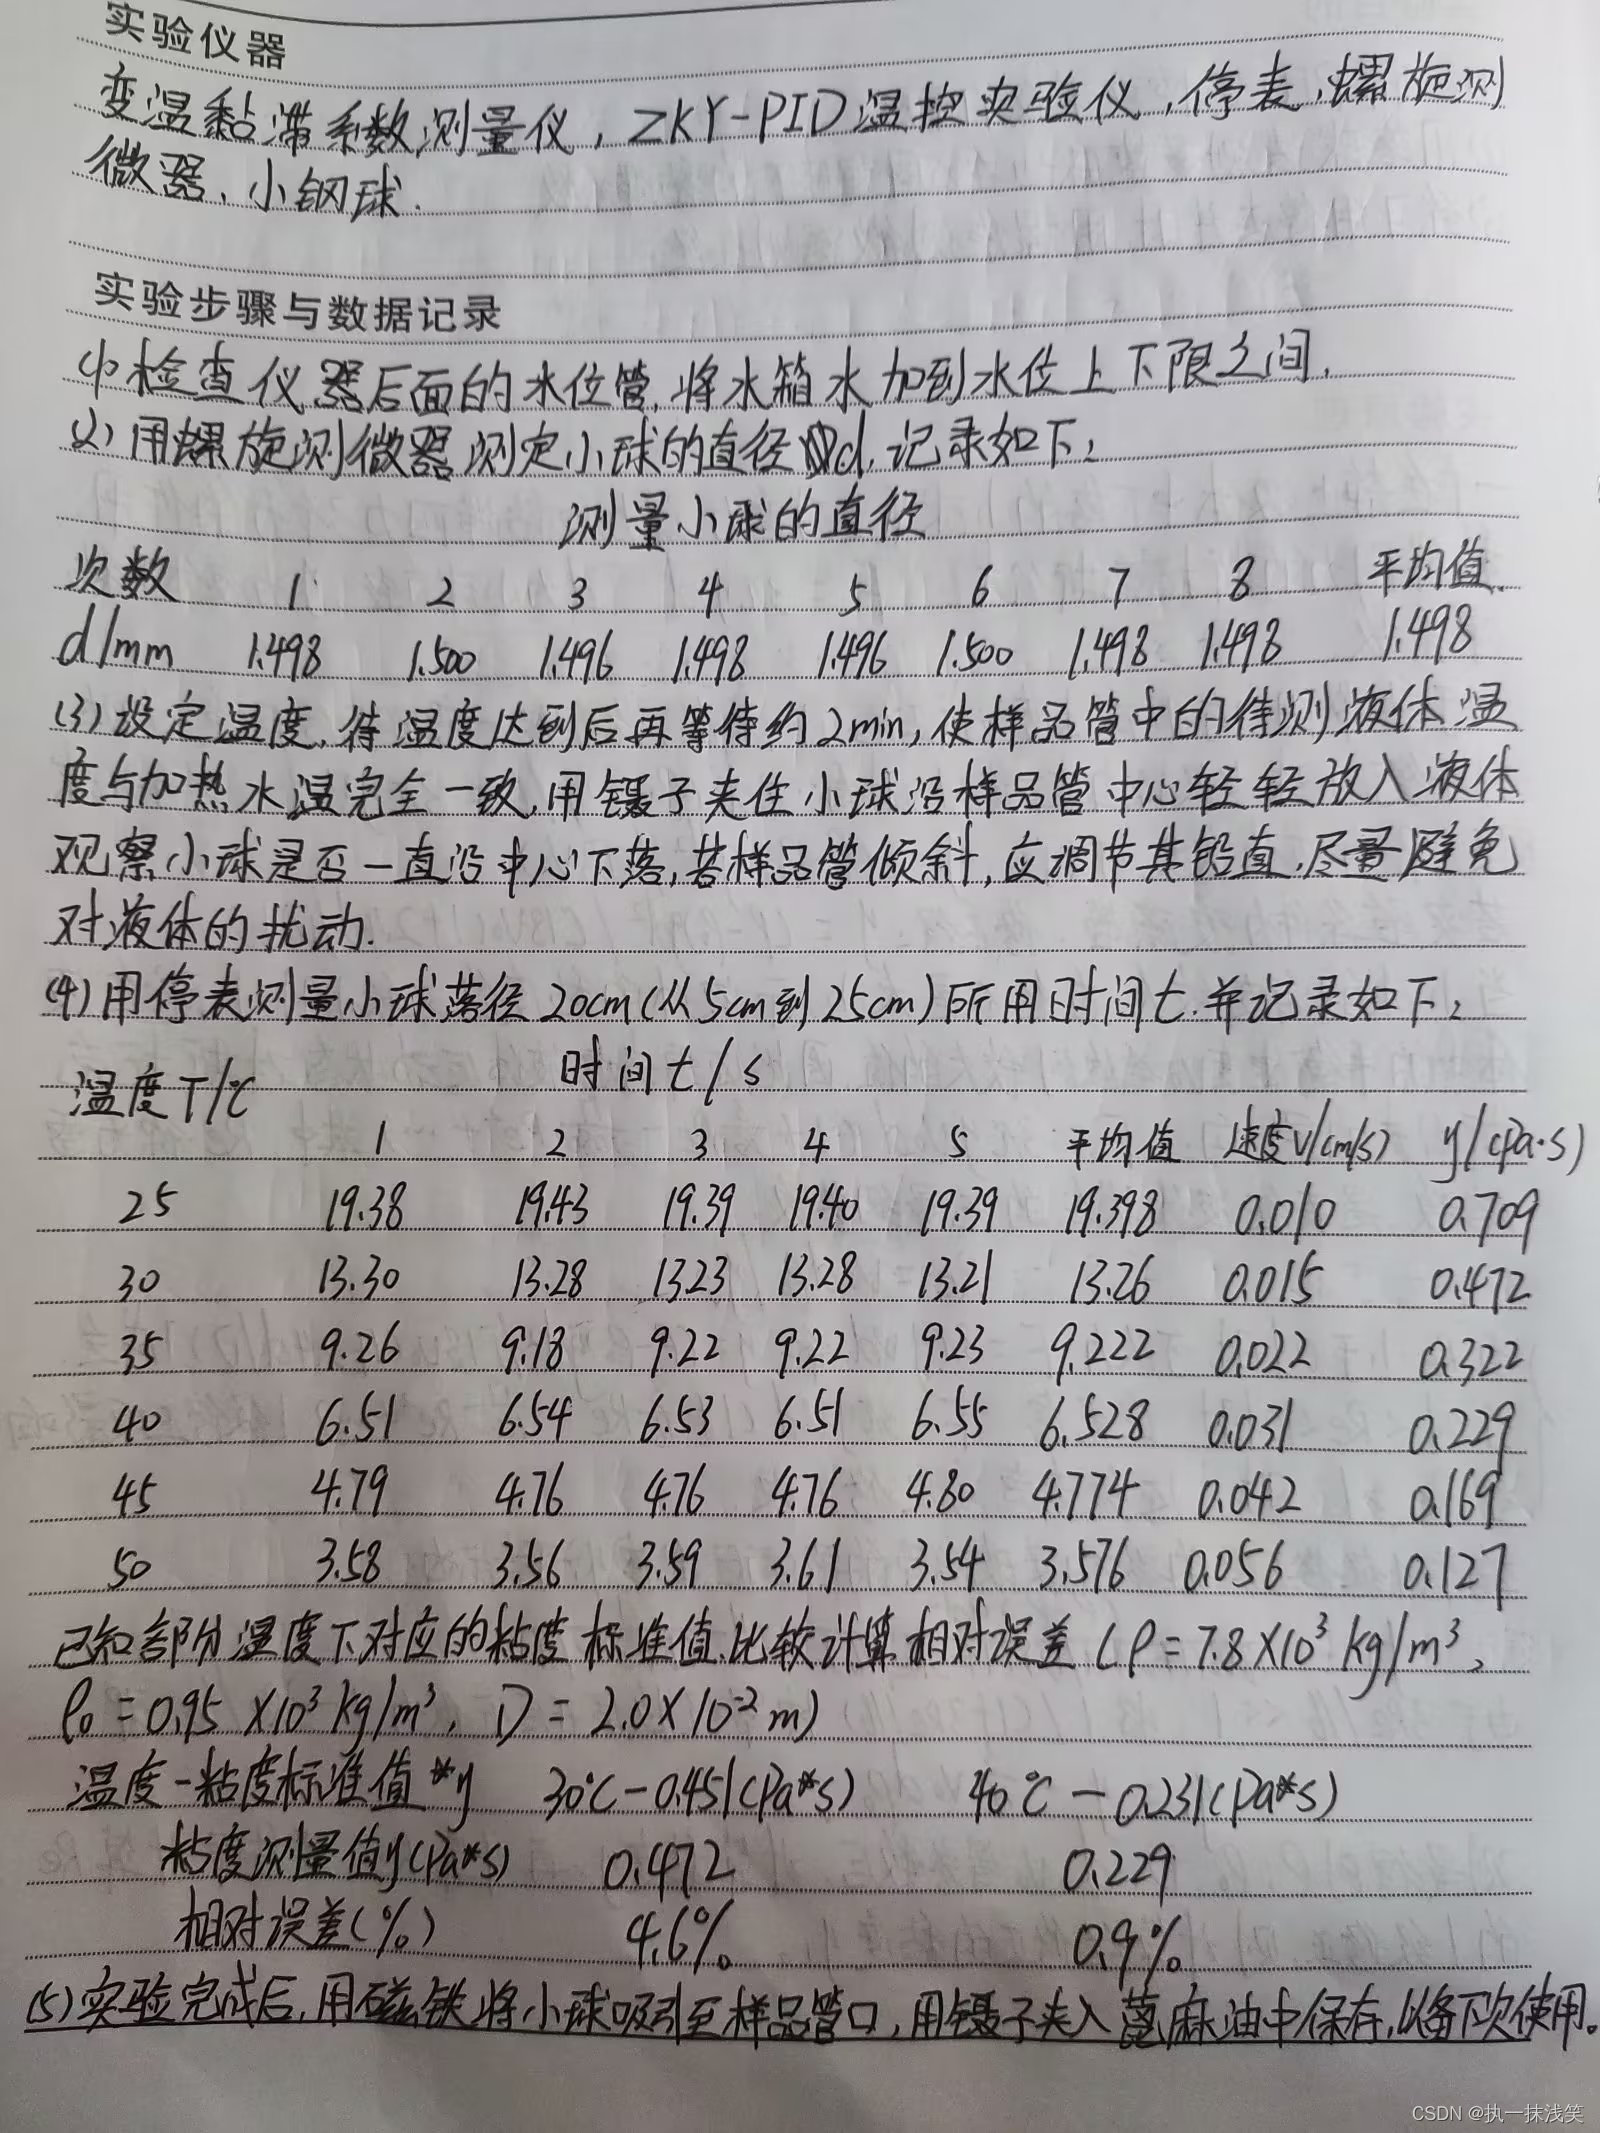 实验仪器
变温黏滞系数测量仪，ZKY-PID温控实验仪，停表，螺旋测
微器，小钢球.
实验步骤与数据记录
(1)检查仪器后面的水位管，将水箱水加到水位上下限之间.
(2)用螺旋测微器测定小球的直径d，记录如下：
测量小球的直径
次数 1 2 3 4 5 6 7 8 平均值
d/mm 1.498 1.500 1.496 1.498 1.496 1.500 1.498 1.498 1.498
(3)设定温度，待温度达到后再等待约2min，使样品管中的待测液体温
度与加热水温完全一致，用镊子夹住小球沿样品管中心轻轻放入液体
观察小球是否一直沿中心下落，若样品管倾斜，应调节其铅直，尽量避免
对液体的扰动.
(4)用停表测量小球落径20cm(从5cm到25cm)所用时间t.并记录如下：
温度T/℃ 时间t/s
1 2 3 4 5 平均值 速度v/(cm/s) η/(Pa·s)
25 19.38 19.43 19.39 19.40 19.39 19.398 0.010 0.709
30 13.30 13.28 13.23 13.28 13.21 13.26 0.015 0.472
35 9.26 9.18 9.22 9.22 9.23 9.222 0.022 0.322
40 6.51 6.54 6.53 6.51 6.55 6.528 0.031 0.229
45 4.79 4.76 4.76 4.76 4.80 4.774 0.042 0.169
50 3.58 3.56 3.59 3.61 3.54 3.576 0.056 0.127
已知部分温度下对应的粘度标准值.比较计算相对误差(ρ=7.8×10³kg/m³,
ρ₀=0.95×10³kg/m³, D=2.0×10⁻²m)
温度-粘度标准值*η 30℃-0.451(Pa*s) 40℃-0.231(Pa*s)
粘度测量值η(Pa*s) 0.472 0.229
相对误差(%) 4.6% 0.9%
(5)实验完成后，用磁铁将小球吸引至样品管口，用镊子夹入蓖麻油中保存，以备下次使用。
CSDN @执一抹浅笑